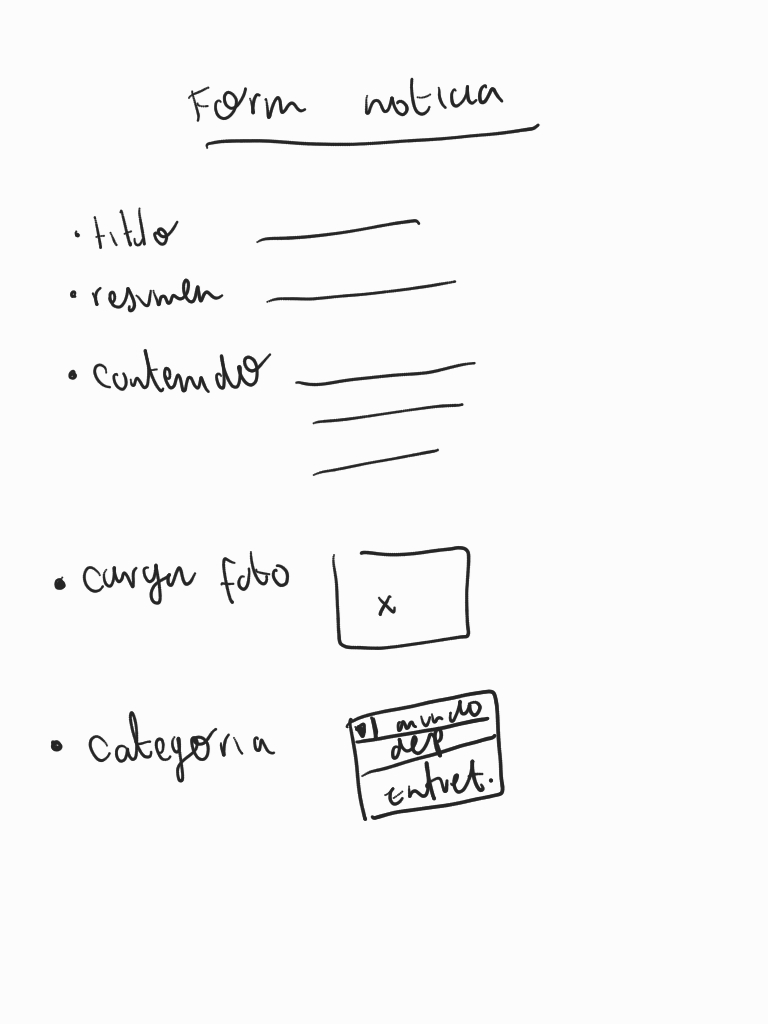 Form noticia
• titulo
• resumen
• contenido
• cargar foto
x
• categoria
mundo
dep
entret.